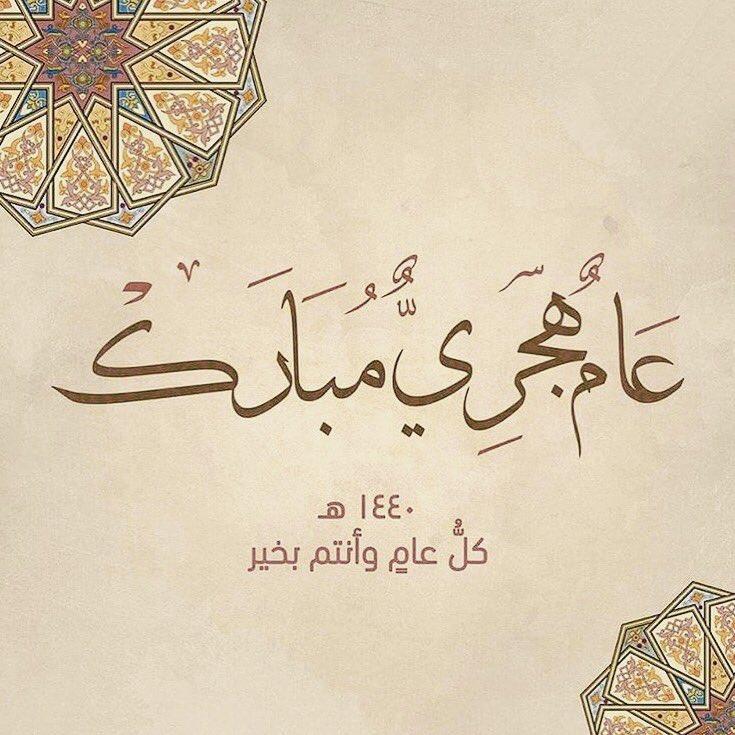 عَامٌ هُجَرِيٌّ مُبَارَك
١٤٤٠ هـ
كلُّ عامٍ وأنتم بخير